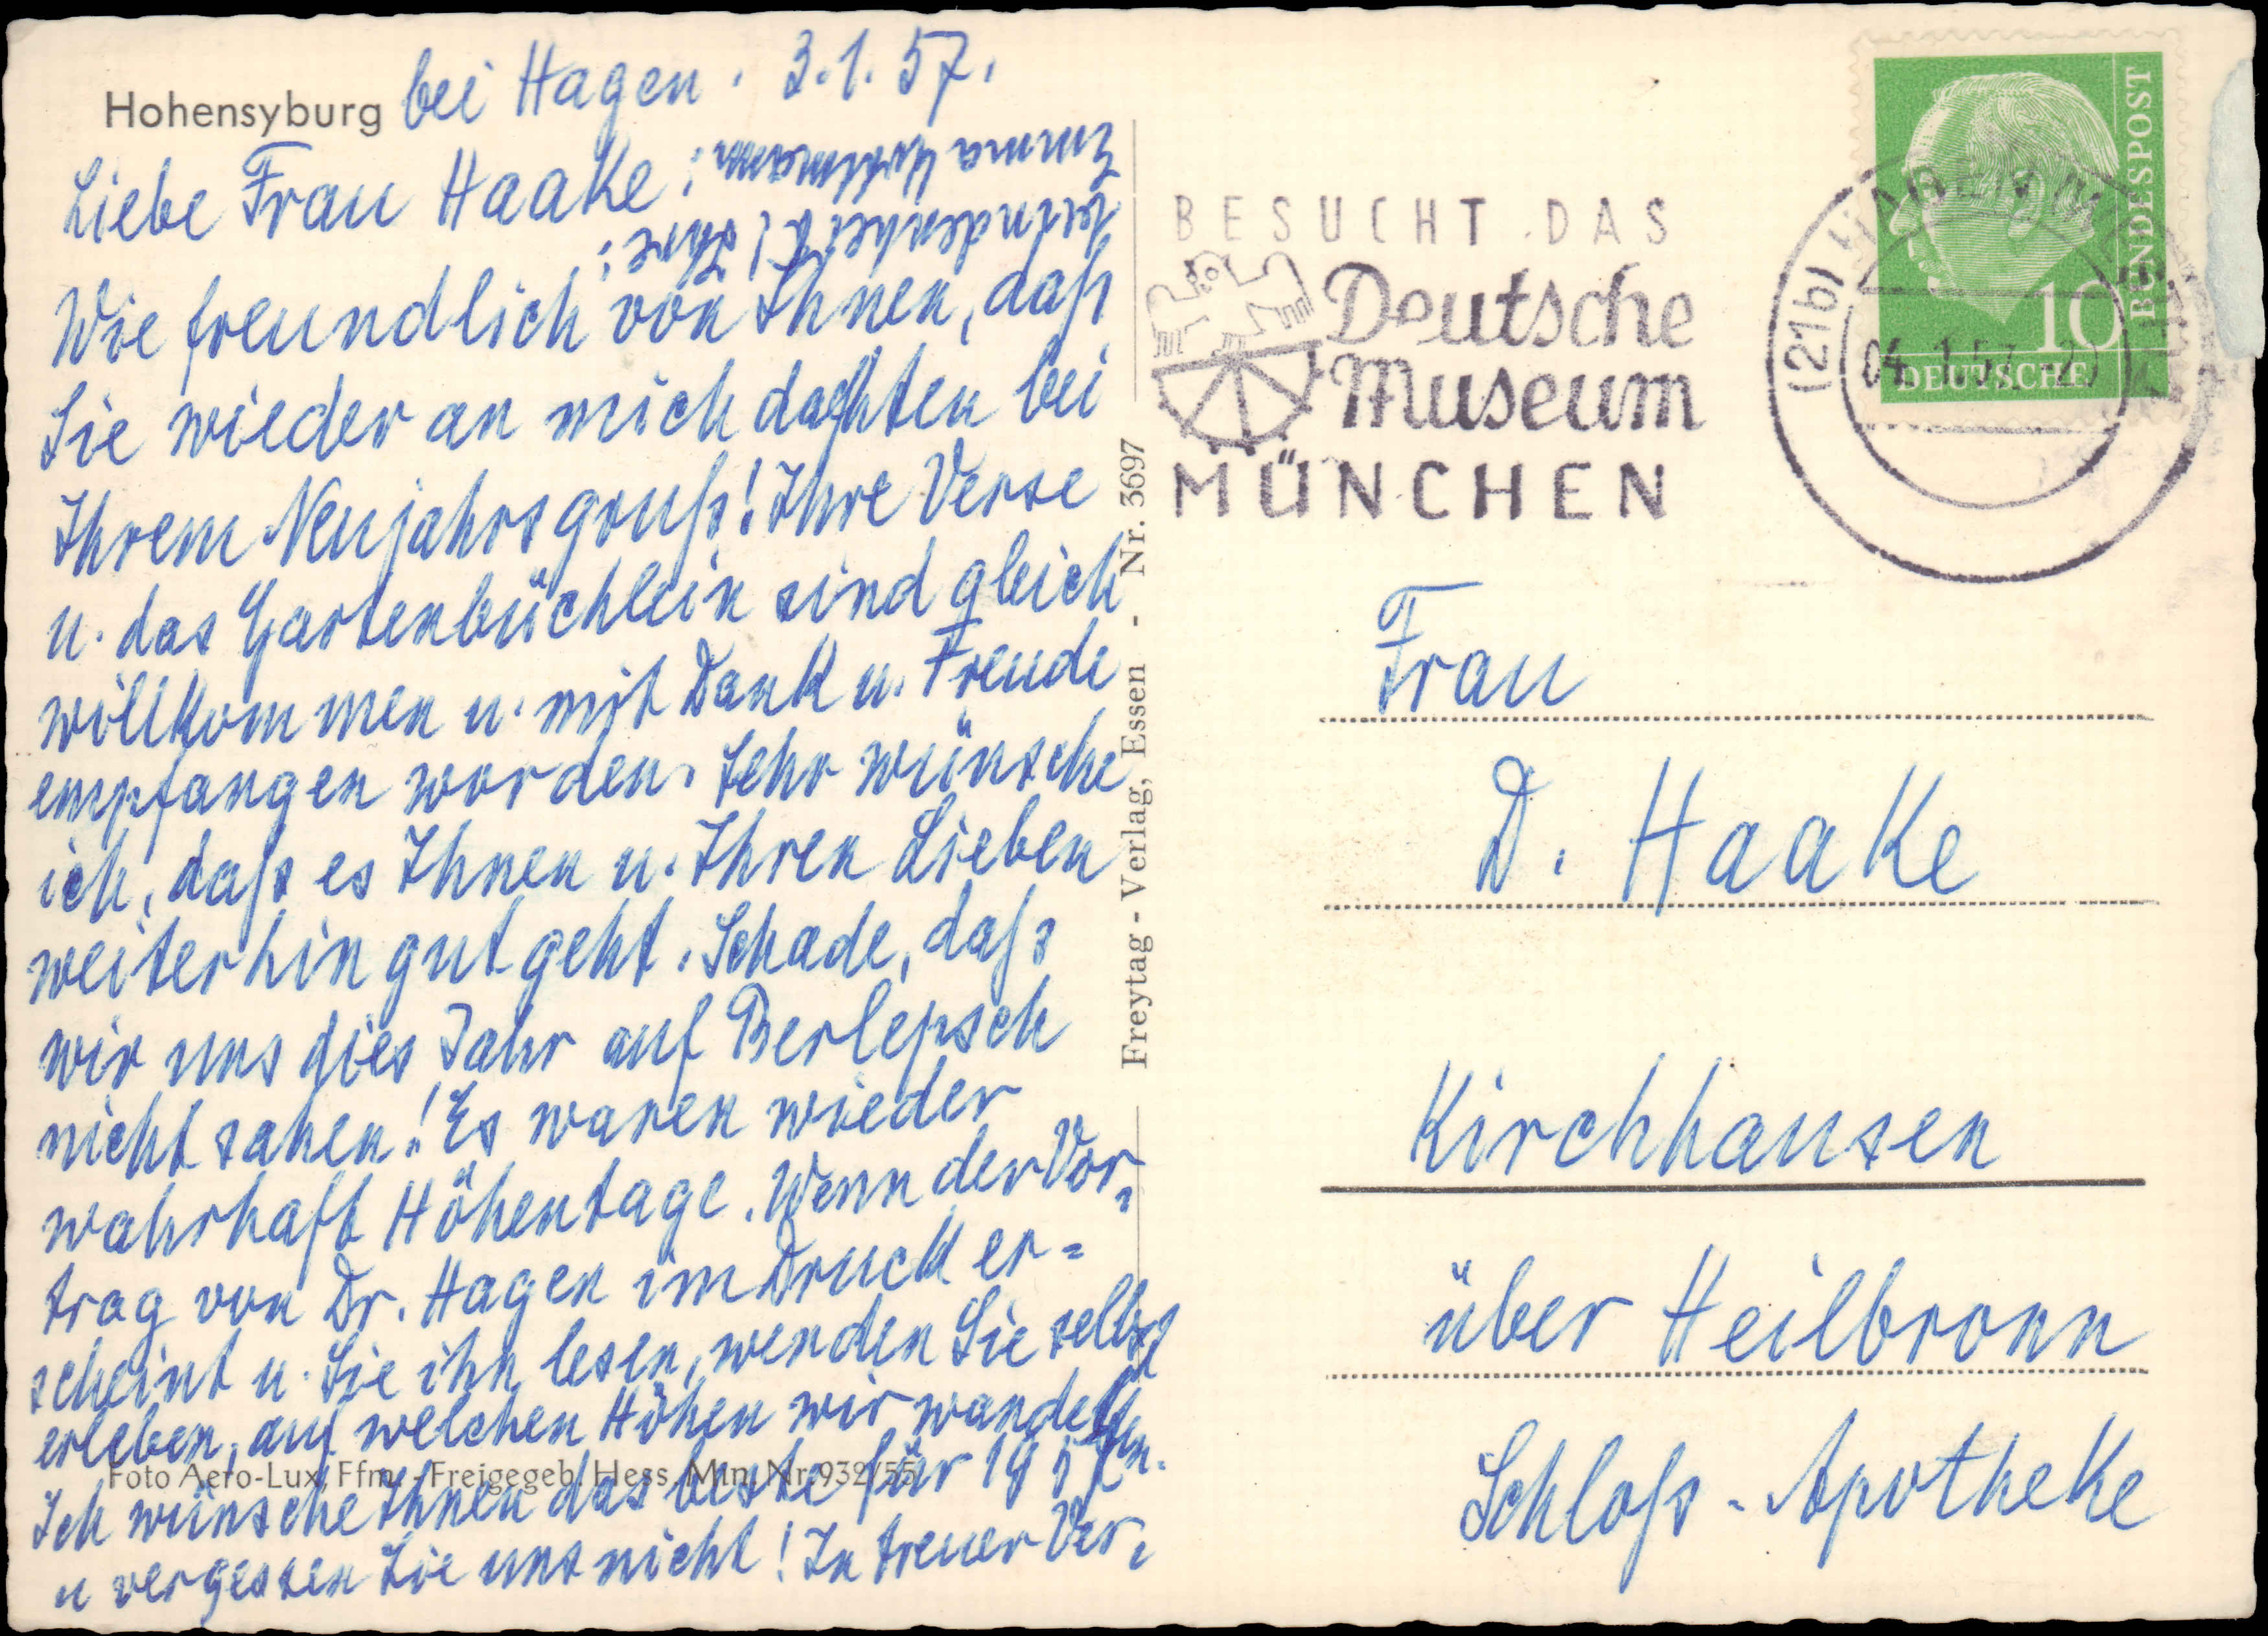 Hohensyburg bei Hagen. 3.1.57.
Liebe Frau Haake!
Wie freundlich von Ihnen, daß
Sie wieder an mich dachten bei
Ihrem Neujahrsgruß! Ihre Verse
u. das Gartenbüchlein sind gleich
willkommen u. mit Dank u. Freude
empfangen worden. Sehr wünsche
ich, daß es Ihnen u. Ihren Lieben
weiterhin gut geht. Schade, daß
wir uns dies Jahr auf Berlepsch
nicht sahen! Es waren wieder
wahrhaft Höhentage. Wenn der Vor-
trag von Dr. Hagen im Druck er=
scheint u. Sie ihn lesen, werden Sie selbst
erleben, auf welchen Höhen wir wandelten.
Ich wünsche Ihnen das beste für 1957
u vergessen Sie uns nicht! In treuer Ver-
bundenheit! Ihre:
Emma
Foto Aero-Lux, Ffm. - Freigegeb. Hess. Min. Nr. 932/55
Freytag - Verlag, Essen - Nr. 3697
BESUCHT DAS
Deutsche
Museum
MÜNCHEN
(21b) HAGEN
04.1.57
DEUTSCHE
BUNDESPOST
10
Frau
D. Haake
Kirchhausen
über Heilbronn
Schloß-Apotheke